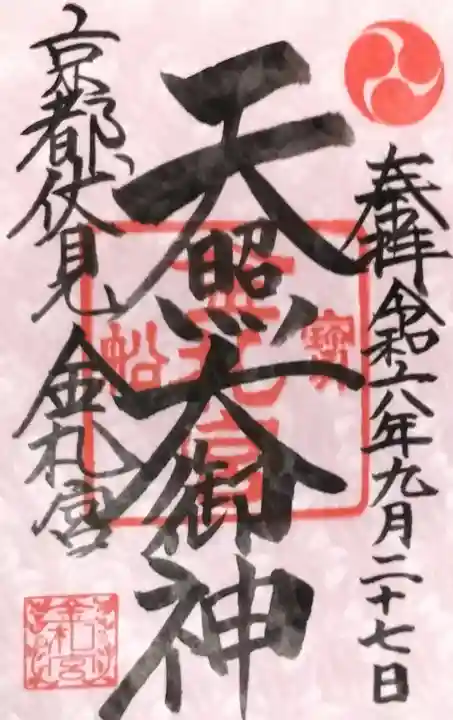 奉拝 令和六年九月二十七日
天照大御神
京都伏見 金札宮
寳船
金札宮